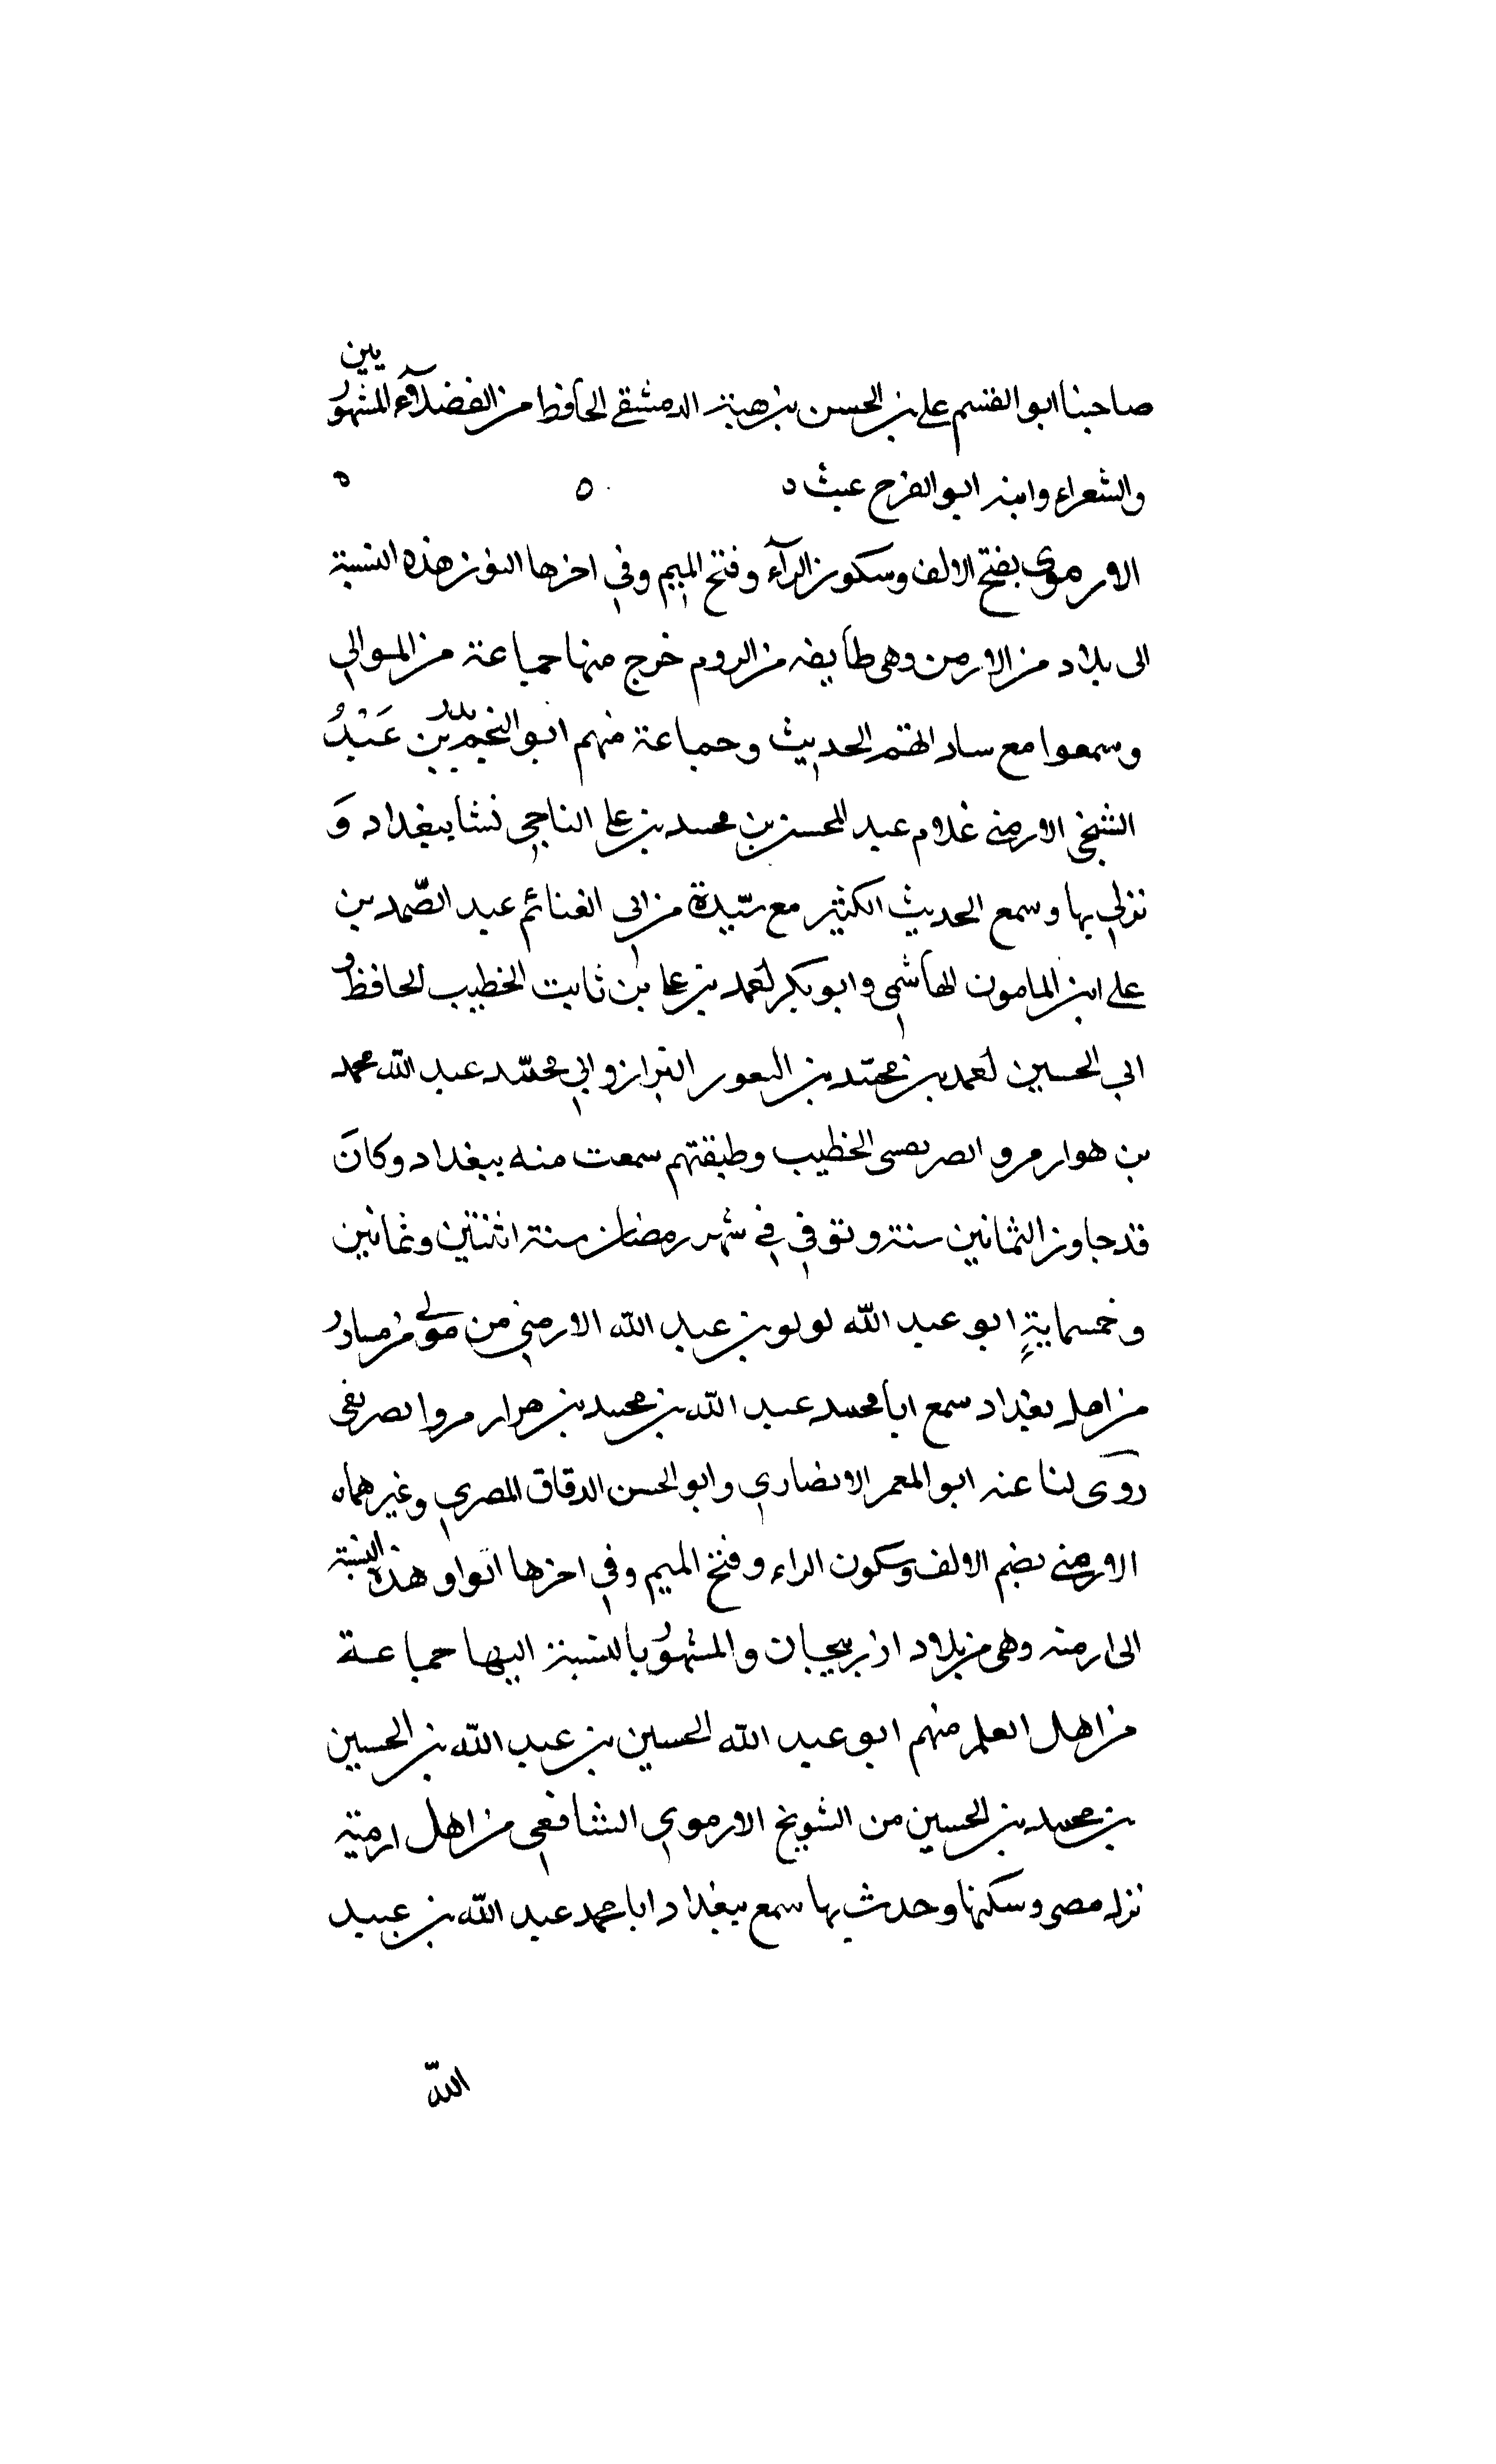 صاحبنا ابو القسم على بن الحسن بن هبة الدمشقى الحافظ من الفضلآء المشهوريين
والشعراء وابنه ابو الفرح عيث د ه ه
الارموى بفتح الالف وسكون الرآء وفتح الميم وفي اخرها النون هذه النسبة
الى بلاد من الارمن وهى طايفه من الروم خرج منها جماعة من الموالي
وسمعوا مع ساداتهم الحديث وجماعة منهم ابو النجم بدر بن عَبْدُ
الشيخى الارمنى غلام عبد المحسن بن محمد بن على الناجي نشا ببغداد وَ
نزل بها وسمع الحديث الكثير مع سيّدة من ابي الغنائم عبد الصّمد بن
على ابن المامون الهاشمي وابو بكر احمد بن على بن ثابت الخطيب الحافظ و
ابي الحسين احمد بن محمّد بن النعور البزاز وابي محمّد عبد الله محمد
بن هوارمرو الصريفى الخطيب وطبقتهم سمعت منه ببغداد وكانَ
قد جاوز الثمانين سنة وتوفي في شهر رمضان سنة اثنتين وثمانين
وخمسمايةٍ ابو عبد الله لولو بن عبد الله الارمني من مولى
من اهل بغداد سمع ابا محمد عبد الله بن محمد بن هزار مرو الصريفى
روى لنا عنه ابو المعمر الانصاري وابو الحسن الدقاق المصري وغيرهما ه
الارمنى بضم الالف وسكون الراء وفتح الميم وفي اخرها الواو هذه النسبة
الى ارمنه وهى من بلاد اذربيجان والمشهور بالنسبة اليها جماعة
من اهل العلم منهم ابو عبد الله الحسين بن عبد الله بن الحسين
بن محمد بن الحسين من الشويخ الارموي الشافعي من اهل ارمية
نزل مصر وسكنها وحدث بها سمع ببغداد ابا محمد عبد الله بن عبيد
الله